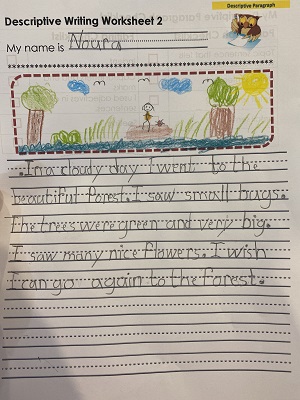 Descriptive Paragraph
Descriptive Writing Worksheet 2
My name is Noura
.In a cloudy day I went to the
beautiful forest. I saw small bugs.
The trees were green and very big.
I saw many nice flowers. I wish
I can go again to the forest.